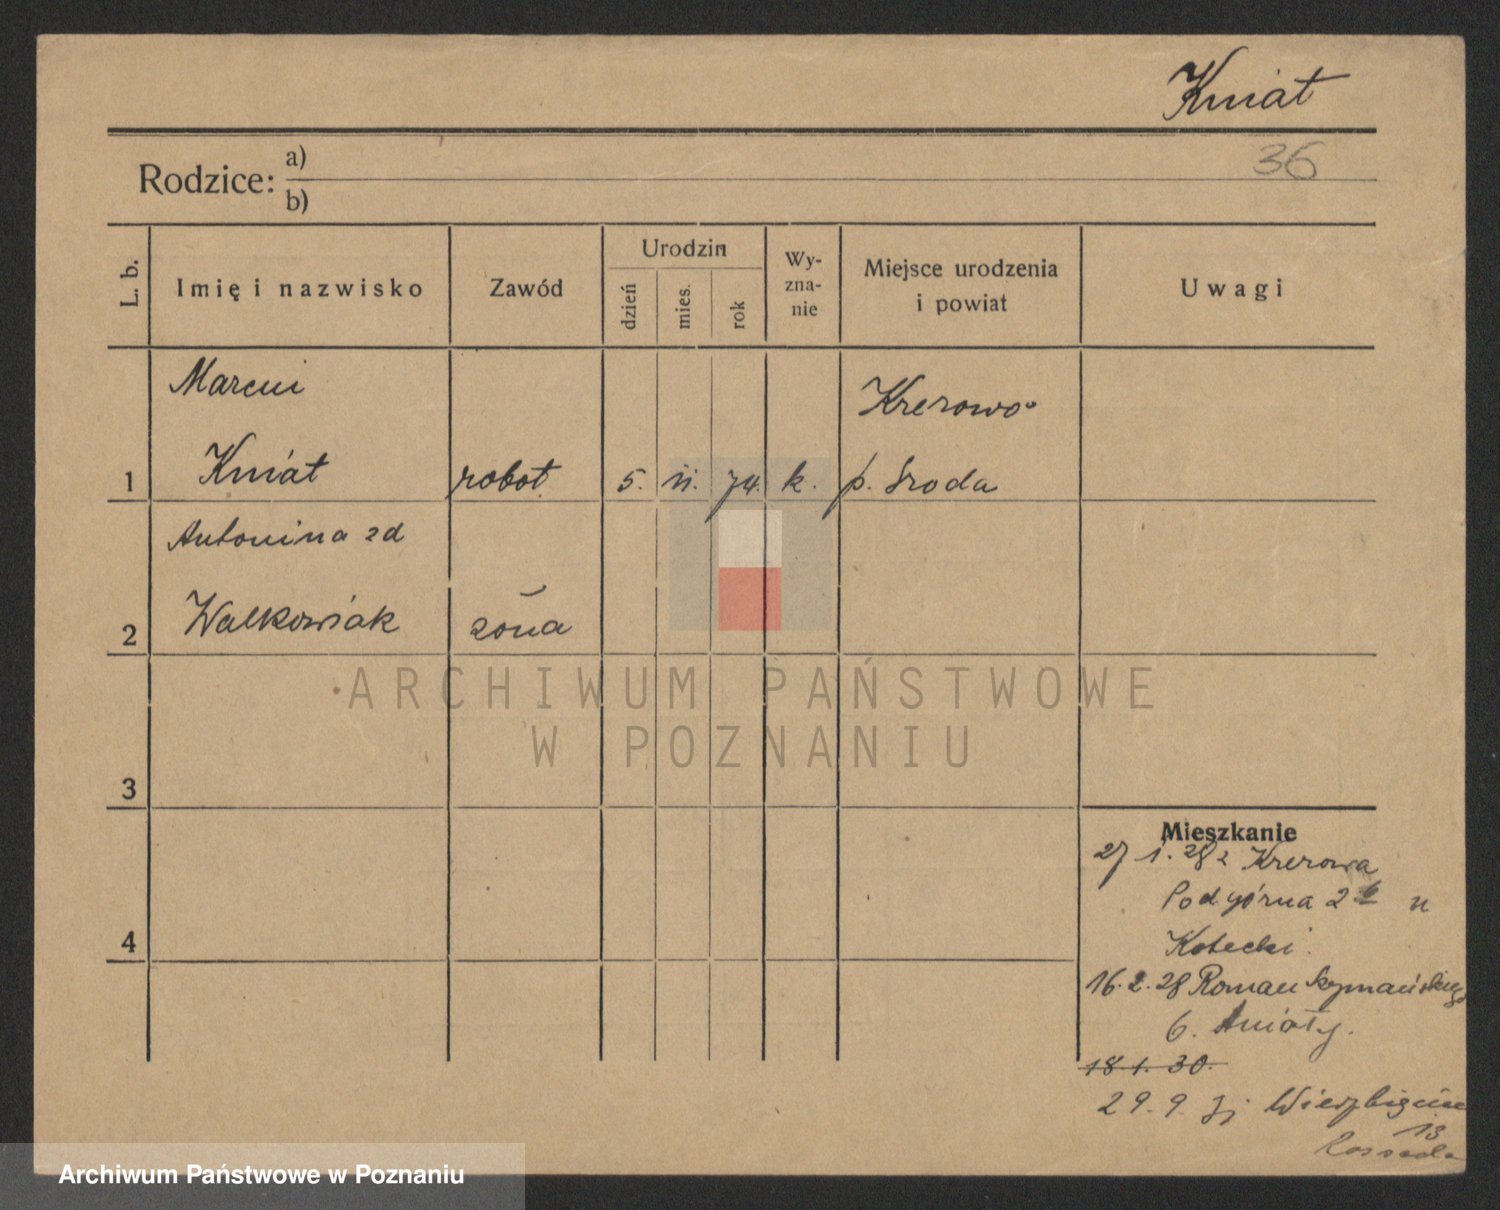 Kniat
36
Rodzice: a)
b)
L. b.
Imię i nazwisko
Zawód
Urodzin
dzień
mies.
rok
Wy-
zna-
nie
Miejsce urodzenia
i powiat
Uwagi
Marcin
Krerowo
1 Kniat robot. 5. 74. k. p. Sroda
Antonina zd
2 Walkowiak żona
ARCHIWUM PAŃSTWOWE
W POZNANIU
3
Mieszkanie
27 1. 28 z Krerowa
Podgórna 2 u
4
Kotecki.
16.2.28 Roman
6.
18 1. 30.
29. 9.
13
Archiwum Państwowe w Poznaniu